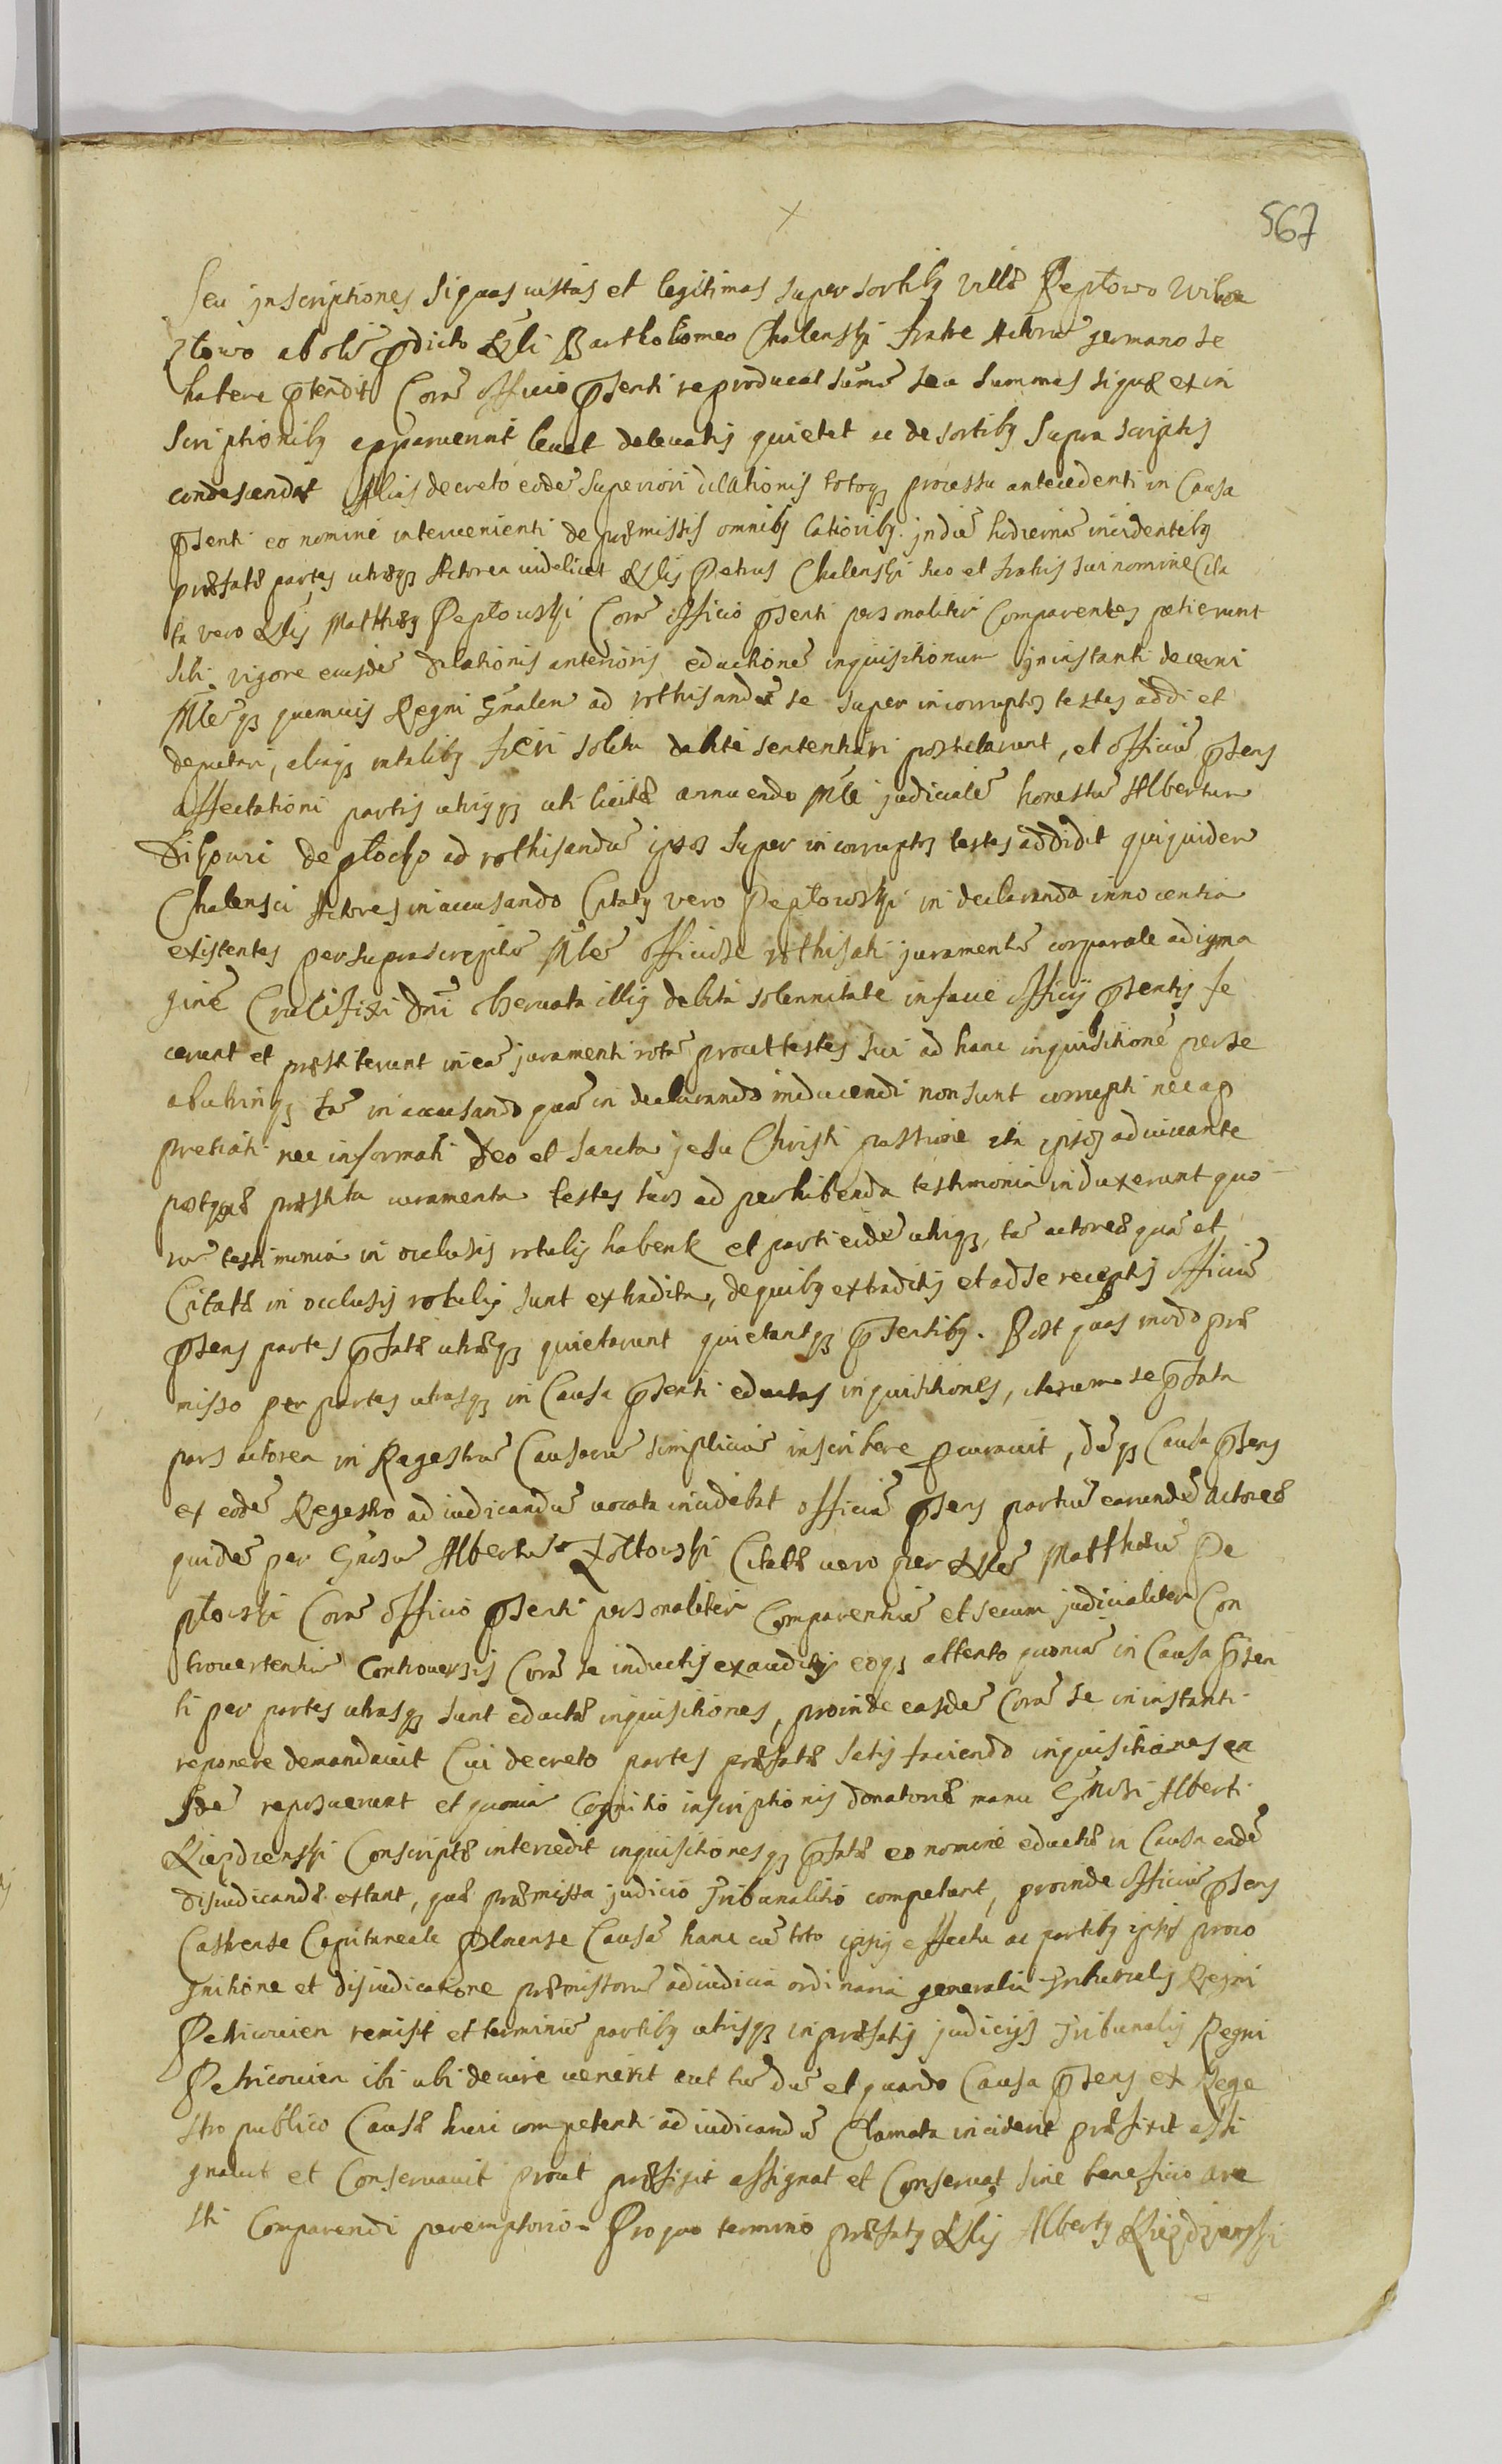 567
seu jnscriptiones siquas iustas et legitimas super sortibꝫ villæ Peptowo Wilcza
ztowo ab olī p̄dicto Nli Bartholomeo Chalenski fratre Actorū germano se
habere p̄tendit Corā officio p̄senti reproducat sum̄ā seu summas siquæ ex in
scriptionibꝫ apparuerint leuet deleuatis quietet ac de sortibꝫ supra scriptis
condescendat Alias decreto eodē superiori dilationis totoqꝫ processu antecedenti in Causa
p̄senti eo nomine interuenienti de præmissis omnibꝫ latioribꝫ. jn diē hodiernā incidentibꝫ
præfatæ partes utræqꝫ Actorea uidelicet Nlis Petrus Chalenski suo et fratris sui nomine Cita
ta vero Nlis Matthæꝫ Peptowski Corā officio p̄senti personaliter Comparentes petierunt
sibi vigore eiusdē dilationis anterioris eductionē inquisitionum jn instanti decerni
Mlēqꝫ quemuis Regni Gn̄alem ad rothisandū se super incorruptos testes addi et
deputari, aliaqꝫ in talibꝫ fieri solita debite sententiari postularunt, et officiū p̄sens
affectationi partis utriusqꝫ uti licitæ annuendo Mlē judicialē honestū Albertum
Dikowi de plocko ad rothisandū ipsos super incorruptos testes addidit quiquidem
Chalensci Actores in accusando Citatꝫ vero Peptowski in declaranda innocentia
existentes per suprascriptū Mlē officiose rothisati juramentū corporale ad jma
ginē Crucifixi Dn̄i obseruata illiꝫ debita solennitate in facie officij p̄sentis fe
cerunt et præstiterunt in eā juramenti rotā prout testes sui ad hanc inquisitionē per se
ab utrinqꝫ tā in accusando quā in declarando inducendi non sunt corrupti nec ap
pretiati nec informati Deo et sancta jesu Christi passione ita ipsos adiuuante
post quæ præstita iuramenta testes suos ad perhibenda testimonia induxerunt quo
rū testimonia in occlusis rotulis habent et parti eidē utriqꝫ, tā actoreæ quā et
Citatæ in occlusis rotulis sunt extradita, de quibꝫ extraditis et ad se receptis officiū
p̄sens partes p̄fatæ utræqꝫ quietarunt quietantqꝫ p̄sentibꝫ. Post quas modo præ
misso per partes utrasqꝫ in Causa p̄senti eductas inquisitiones, iterum se p̄fata
pars actorea in Regestrū Causarū simpliciū inscribere p̄curauit, dūqꝫ Causa p̄sens
ex eodē Regestro ad iudicandū uocata incidebat officiū p̄sens partiū earundē Actoreæ
quidē per Gn̄osū Albertū Żołtowski Citatæ vero per Nlē Matthæū Pe
ptowski Corā officio p̄senti personaliter Comparentiū et secum judicialiter Con
trouertentiū Controuersijs Corā se inductis exauditis eoqꝫ attento quoniā in Causa p̄sen
ti per partes utrasqꝫ sunt eductæ inquisitiones, proinde easdē Corā se in instanti
reponere demandauit Cui decreto partes præfatæ satis faciendo inquisitiones ea
sdē reposuerunt et quoniā Cognitio inscriptionis donatoriæ manu Gn̄osi Alberti
Niezdzienski Conscriptæ intercedit inquisitionesqꝫ p̄fatæ eo nomine eductæ in Causa eadē
disiudicandæ extant, quæ præmissa judicio Tribunalitio competunt, proinde officiū p̄sens
Castrense Capitaneale Plnense Causā hanc cū toto ipsiꝫ effectu ac partibꝫ ipsis pro co
gnitione et disiudicatione præmissorū ad iudicia ordinaria generalia Tribunalis Regni
Petricouien remisit et terminū partibꝫ utrisqꝫ in præfatis judicijs Tribunalis Regni
Petricouien ibi ubi de iure uenerit aut tū dū et quando Causa p̄sens ex Rege
stro publico Causæ huic competenti ad iudicandū Clamata inciderit præfixit assi
gnauit et Conseruauit prout præfigit assignat et Conseruat sine beneficio are
sti Comparendi peremptorio. Pro quo termino præfatꝫ Nlis Albertꝫ Niezdzienski